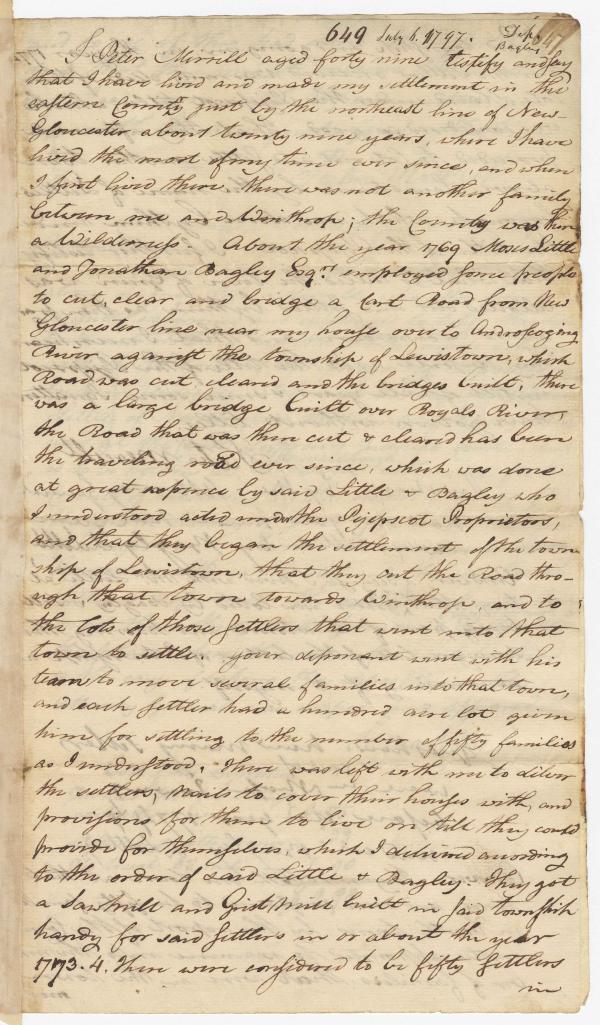 649 July 6. 1797. Dep.
Bagley 47
I Peter Merrill aged forty nine testify and say
that I have lived and made my settlement in the
eastern County just by the northeast line of New-
Gloucester about twenty nine years, where I have
lived the most of my time ever since, and when
I first lived there, there was not another family
between me and Winthrop; the County was then
a Wilderness. About the year 1769 Moses Little
and Jonathan Bagley Esqrs employed some people
to cut, clear and bridge a Cart Road from New
Gloucester line near my house over to Androscoging
River against the township of Lewistown, which
Road was cut, cleared and the bridges built, there
was a large bridge built over Royals River,
the Road that was then cut & cleared has been
the traveling road ever since, which was done
at great expence by said Little & Bagley who
I understood acted under the Pejepscot Proprietors,
and that they began the settlement of the town
ship of Lewistown, that they cut the Road thro-
ugh that town towards Winthrop, and to
the lots of those settlers that went into that
town to settle. your deponant went with his
team to move several families into that town,
and each settler had a hundred acre lot given
him for settling to the number of fifty families
as I understood. There was left with me to deliver
the settlers, nails to cover their houses with, and
provisions for them to live on till they could
provide for themselves, which I delivered according
to the order of said Little & Bagley. They got
a Sawmill and Grist Mill built in said township
handy for said settlers in or about the year
1773.4. There were considered to be fifty settlers
in